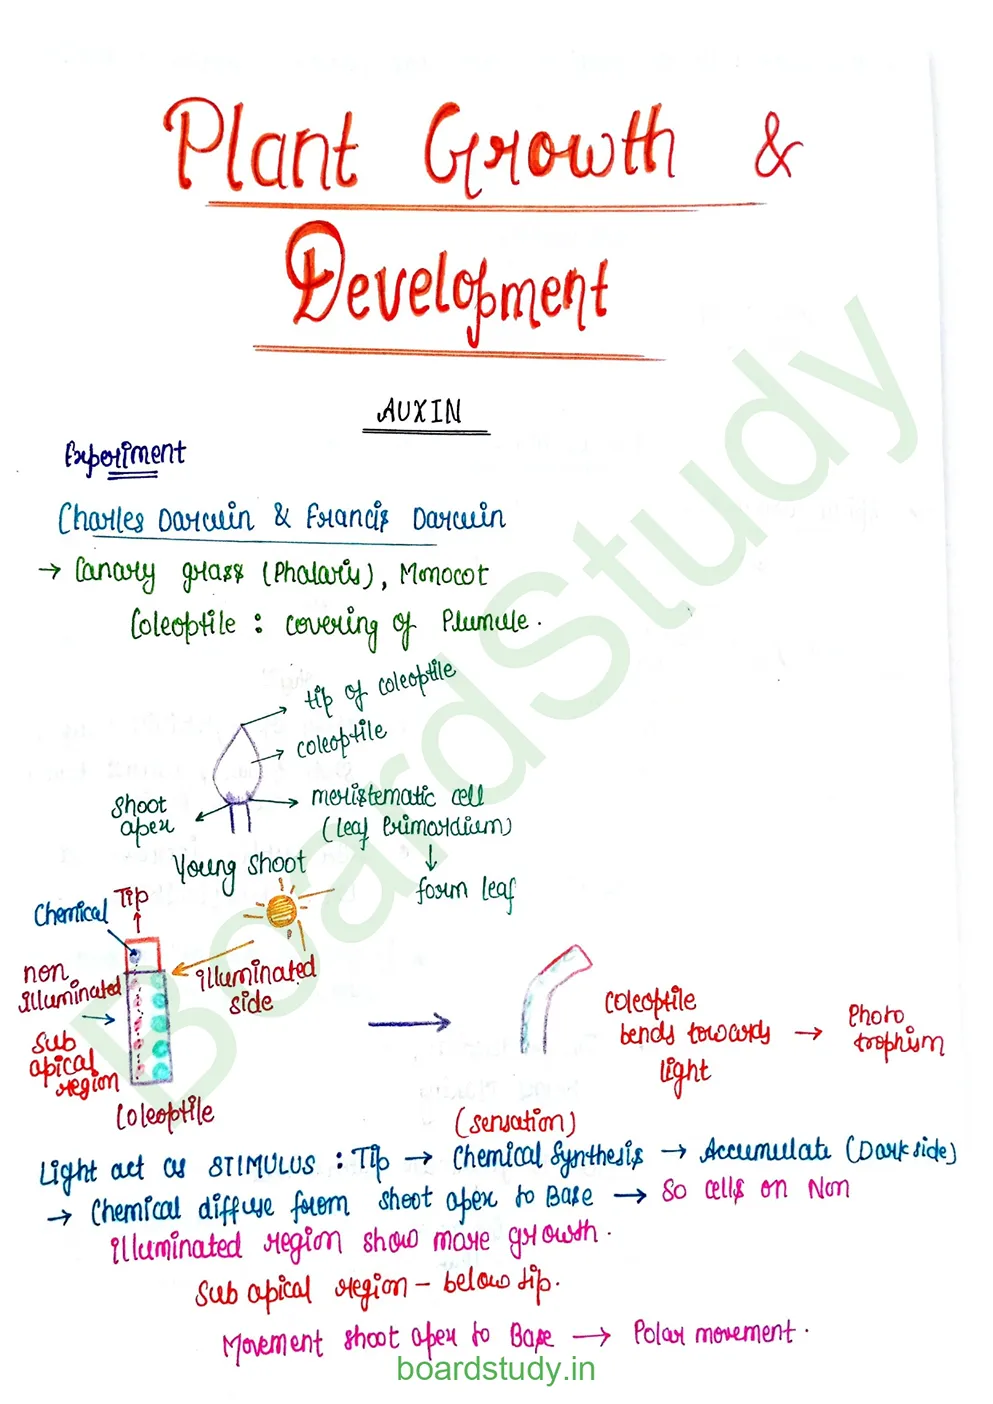 Plant Growth &
Development
AUXIN
Experiment
Charles Darwin & Francis Darwin
→ Canary grass (Phalaris), Monocot
Coleoptile : covering of Plumule.
tip of coleoptile
coleoptile
shoot apex
meristematic cell
(leaf Primordium)
↓
form leaf
Young shoot
Tip
Chemical
non illuminated
illuminated side
Sub apical region
Coleoptile
Coleoptile bends towards light → Phototrophism
(sensation)
Light act as STIMULUS : Tip → Chemical Synthesis → Accumulate (Dark side)
→ Chemical diffuse form shoot apex to Base → So cells on Non
illuminated region show more growth.
Sub apical region - below tip.
Movement shoot apex to Base → Polar movement.
boardstudy.in
BoardStudy